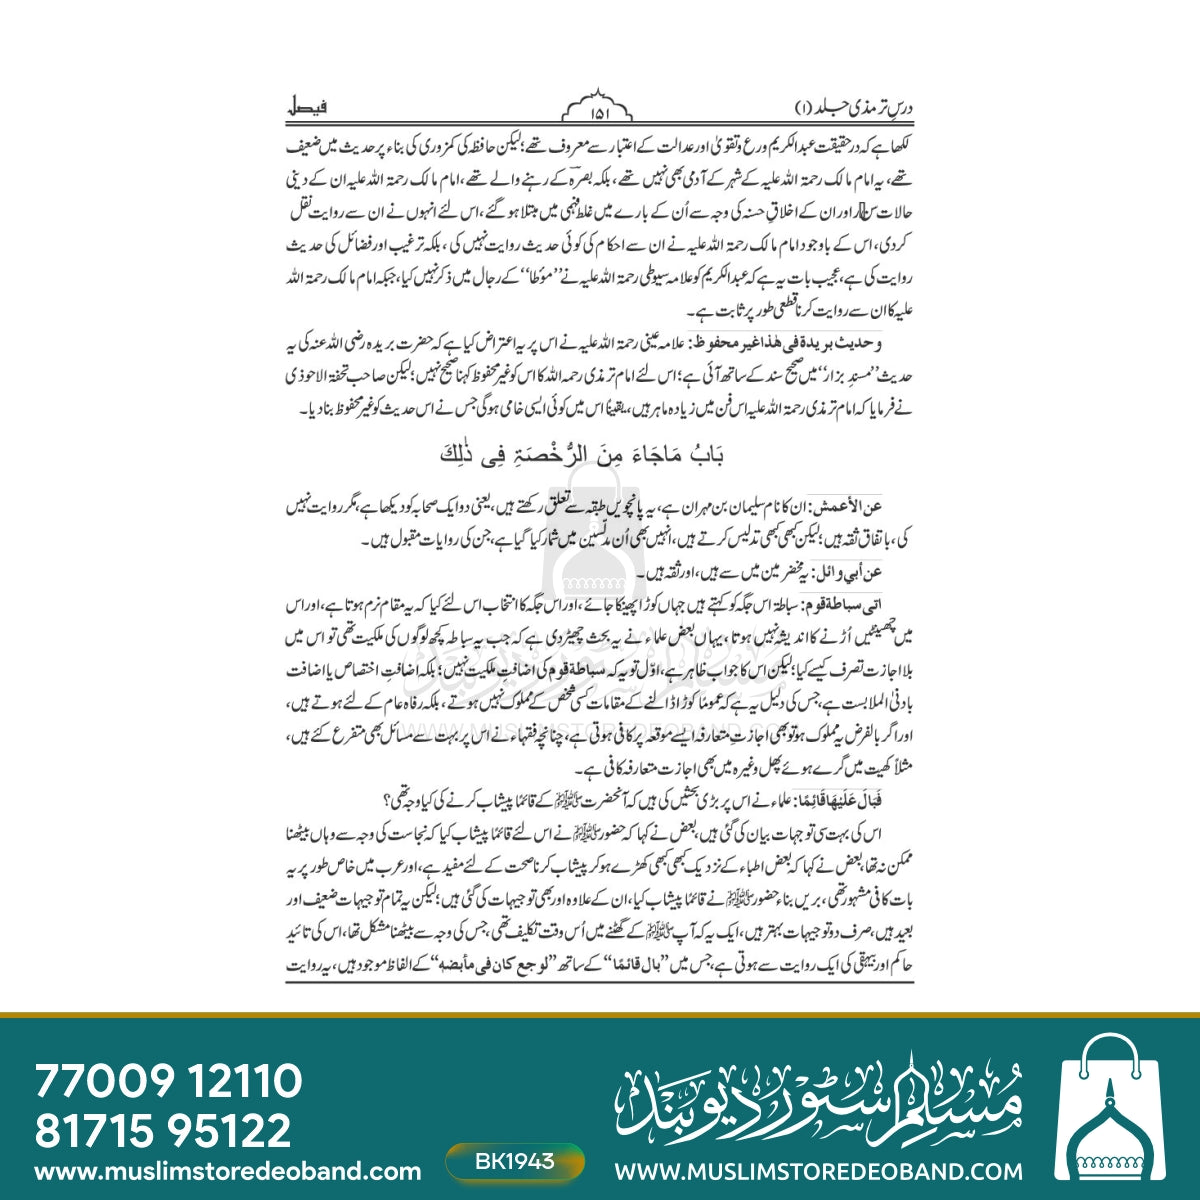 درسِ ترمذی جلد (۱)
۱۵۱
فیصل
لکھا ہے کہ در حقیقت عبدالکریم ورع و تقویٰ اور عدالت کے اعتبار سے معروف تھے؛ لیکن حافظہ کی کمزوری کی بناء پر حدیث میں ضعیف
تھے، یہ امام مالک رحمۃ اللہ علیہ کے شہر کے آدمی بھی نہیں تھے، بلکہ بصرہ کے رہنے والے تھے، امام مالک رحمۃ اللہ علیہ ان کے دینی
حالات سن اور ان کے اخلاقِ حسنہ کی وجہ سے اُن کے بارے میں غلط فہمی میں مبتلا ہو گئے، اس لئے انہوں نے ان سے روایت نقل
کردی، اس کے باوجود امام مالک رحمۃ اللہ علیہ نے ان سے احکام کی کوئی حدیث روایت نہیں کی، بلکہ ترغیب اور فضائل کی حدیث
روایت کی ہے، عجیب بات یہ ہے کہ عبدالکریم کو علامہ سیوطی رحمۃ اللہ علیہ نے ’’مؤطا‘‘ کے رجال میں ذکر نہیں کیا، جبکہ امام مالک رحمۃ اللہ
علیہ کا ان سے روایت کرنا قطعی طور پر ثابت ہے۔
وحدیث بریدۃ فی ھٰذا غیر محفوظ: علامہ عینی رحمۃ اللہ علیہ نے اس پر یہ اعتراض کیا ہے کہ حضرت بریدہ رضی اللہ عنہ کی یہ
حدیث ’’مسندِ بزار‘‘ میں صحیح سند کے ساتھ آئی ہے؛ اس لئے امام ترمذی رحمہ اللہ کا اس کو غیر محفوظ کہنا صحیح نہیں؛ لیکن صاحب تحفۃ الاحوذی
نے فرمایا کہ امام ترمذی رحمۃ اللہ علیہ اس فن میں زیادہ ماہر ہیں، یقینًا اس میں کوئی ایسی خامی ہوگی جس نے اس حدیث کو غیر محفوظ بنا دیا۔
بَابُ مَاجَاءَ مِنَ الرُّخْصَۃِ فِی ذٰلِکَ
عن الأعمش: ان کا نام سلیمان بن مہران ہے، یہ پانچویں طبقہ سے تعلق رکھتے ہیں، یعنی دو ایک صحابہ کو دیکھا ہے، مگر روایت نہیں
کی، باتفاق ثقہ ہیں؛ لیکن کبھی کبھی تدلیس کرتے ہیں، انہیں بھی اُن مدلّسین میں شمار کیا گیا ہے، جن کی روایات مقبول ہیں۔
عن أبي وائل: یہ مخضرمین میں سے ہیں، اور ثقہ ہیں۔
اتی سباطۃ قوم: سباطۃ اس جگہ کو کہتے ہیں جہاں کوڑا پھینکا جائے، اور اس جگہ کا انتخاب اس لئے کیا کہ یہ مقام نرم ہوتا ہے، اور اس
میں چھینٹیں اُڑنے کا اندیشہ نہیں ہوتا، یہاں بعض علماء نے یہ بحث چھیڑ دی ہے کہ جب یہ سباطہ کچھ لوگوں کی ملکیت تھی تو اس میں
بلا اجازت تصرف کیسے کیا؛ لیکن اس کا جواب ظاہر ہے، اوّل تو یہ کہ سباطۃ قوم کی اضافت ملکیت نہیں؛ بلکہ اضافتِ اختصاص یا اضافت
بادنیٰ الملابست ہے، جس کی دلیل یہ ہے کہ عمومًا کوڑا ڈالنے کے مقامات کسی شخص کے مملوک نہیں ہوتے، بلکہ رفاہ عام کے لئے ہوتے ہیں،
اور اگر بالفرض یہ مملوک ہو تو بھی اجازتِ متعارفہ ایسے موقعہ پر کافی ہوتی ہے، چنانچہ فقہاء نے اس پر بہت سے مسائل بھی متفرع کئے ہیں،
مثلاً کھیت میں گرے ہوئے پھل وغیرہ میں بھی اجازت متعارفہ کافی ہے۔
فَبَالَ عَلَیْهَا قَائِمًا: علماء نے اس پر بڑی بحثیں کی ہیں کہ آنحضرت ﷺ کے قائمًا پیشاب کرنے کی کیا وجہ تھی؟
اس کی بہت سی توجہات بیان کی گئی ہیں، بعض نے کہا کہ حضور ﷺ نے اس لئے قائمًا پیشاب کیا کہ نجاست کی وجہ سے وہاں بیٹھنا
ممکن نہ تھا، بعض نے کہا کہ بعض اطباء کے نزدیک کبھی کبھی کھڑے ہو کر پیشاب کرنا صحت کے لئے مفید ہے، اور عرب میں خاص طور پر یہ
بات کافی مشہور تھی، بریں بناء حضور ﷺ نے قائمًا پیشاب کیا، ان کے علاوہ اور بھی توجیہات کی گئی ہیں؛ لیکن یہ تمام توجیہات ضعیف اور
بعید ہیں، صرف دو توجیہات بہتر ہیں، ایک یہ کہ آپ ﷺ کے گھٹنے میں اُس وقت تکلیف تھی، جس کی وجہ سے بیٹھنا مشکل تھا، اس کی تائید
حاکم اور بیہقی کی ایک روایت سے ہوتی ہے، جس میں ’’بال قائمًا‘‘ کے ساتھ ’’لوجع کان فی مأبضه‘‘ کے الفاظ موجود ہیں، یہ روایت
مسلم سٹور دیوبند
WWW.MUSLIMSTOREDEOBAND.COM
77009 12110
81715 95122
www.muslimstoredeoband.com
BK1943
مُسلم سٹور دیوبند
WWW.MUSLIMSTOREDEOBAND.COM